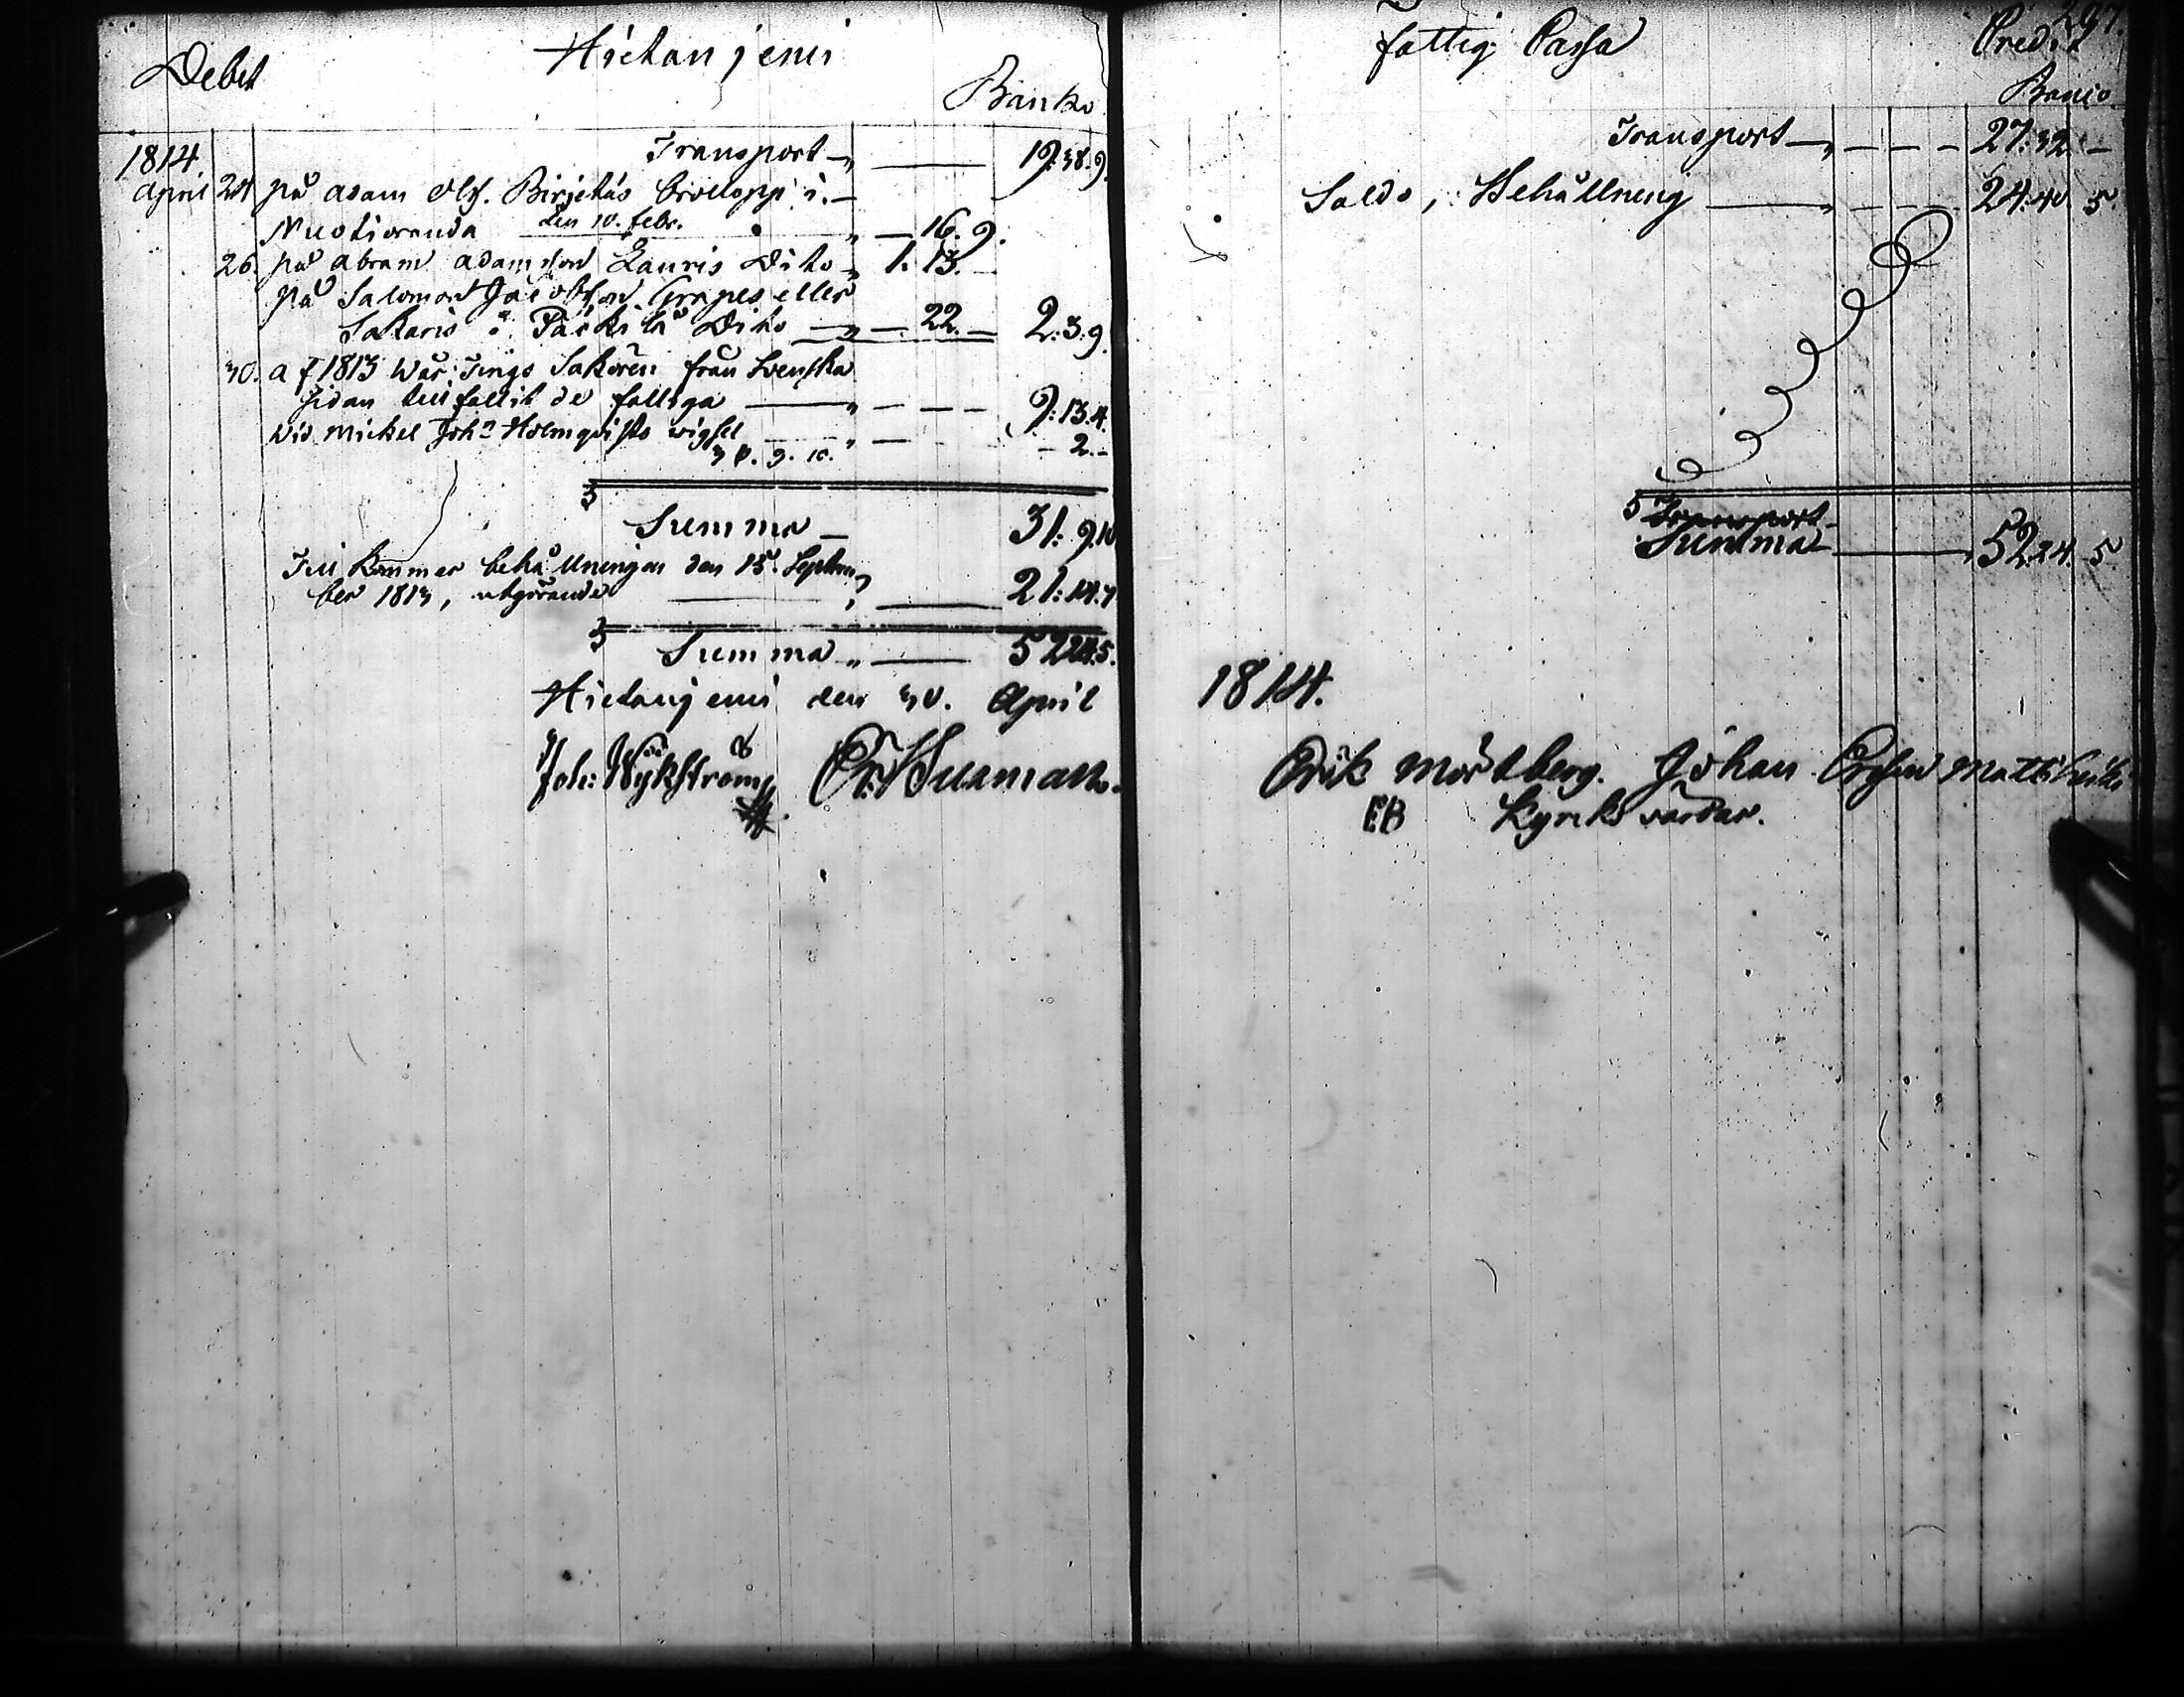 Debet Hietanjemi
Banko
1814. Transport 19:38.9.
April 24 på Adam Ols. Birjetäs bröllopp i
Muotioranda den 10. febr. 16.9.
26. på Abram Adamsson Lauris Dito 1. 13.
på Salomon Jacobsson Grapes eller
Sakaris i Päkkilä Dito 22. 2:3.9.
30. af 1813 Wår Tings Saköre från Svenska
sidan tillfallit de fattiga 9:13.4.
wid Mickel John Holmqvists wigsel 2.
31. 9. 10.
Summa 31: 9.10
Till kommer behållningen den 15. Septem
ber 1813, utgörande 21:14.7
Summa 52 24.5.
Hietanjemi den 30. April
Joh: Wykström
fattig Cassa 297.
Credit
Banco
Transport 27:32.
Saldo, Behållning 24:40. 5.
Transport
Summa 52:24. 5
1814.
Erik Mörtberg. Johan Ersson Matti
EB Kyrkovärdar.